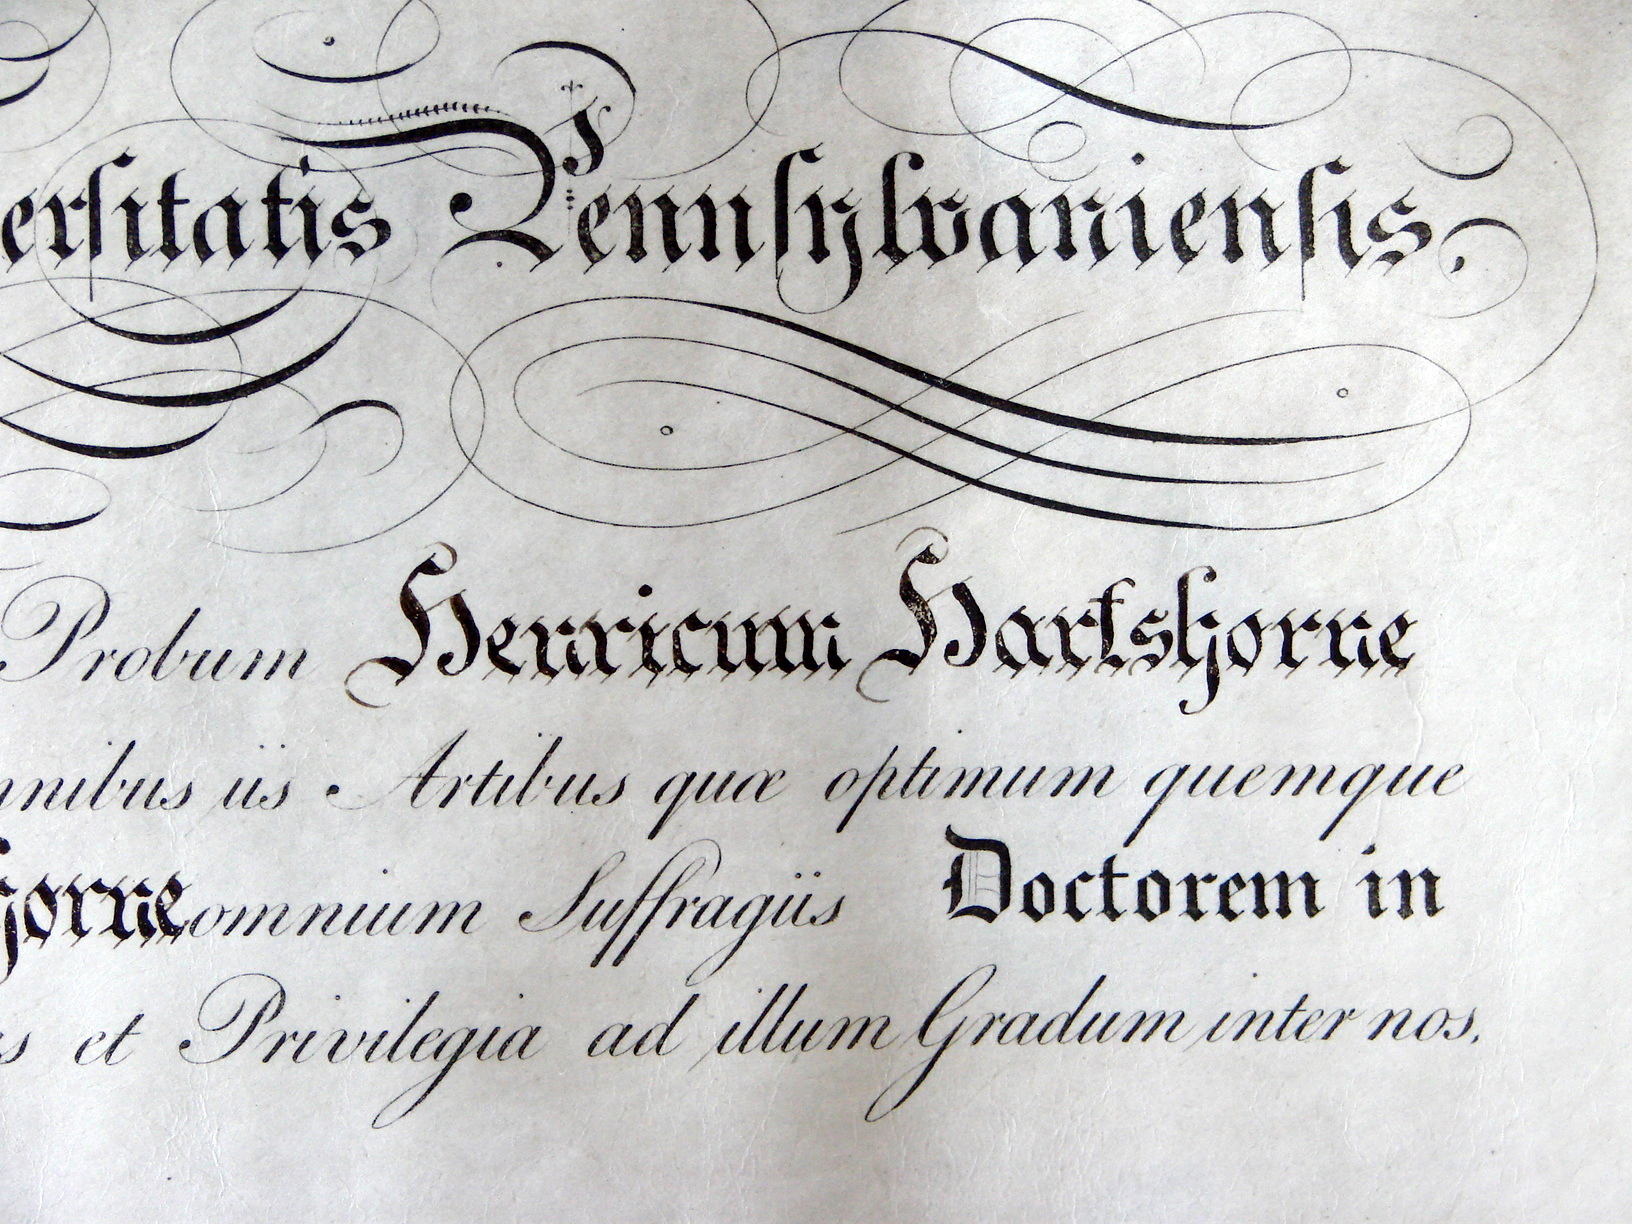 ersitatis Pennsylvaniensis,
Probum Henricum Hartshorne
nnibus iis Artibus quæ optimum quemque
horne omnium Suffragiis Doctorem in
s et Privilegia ad illum Gradum inter nos,